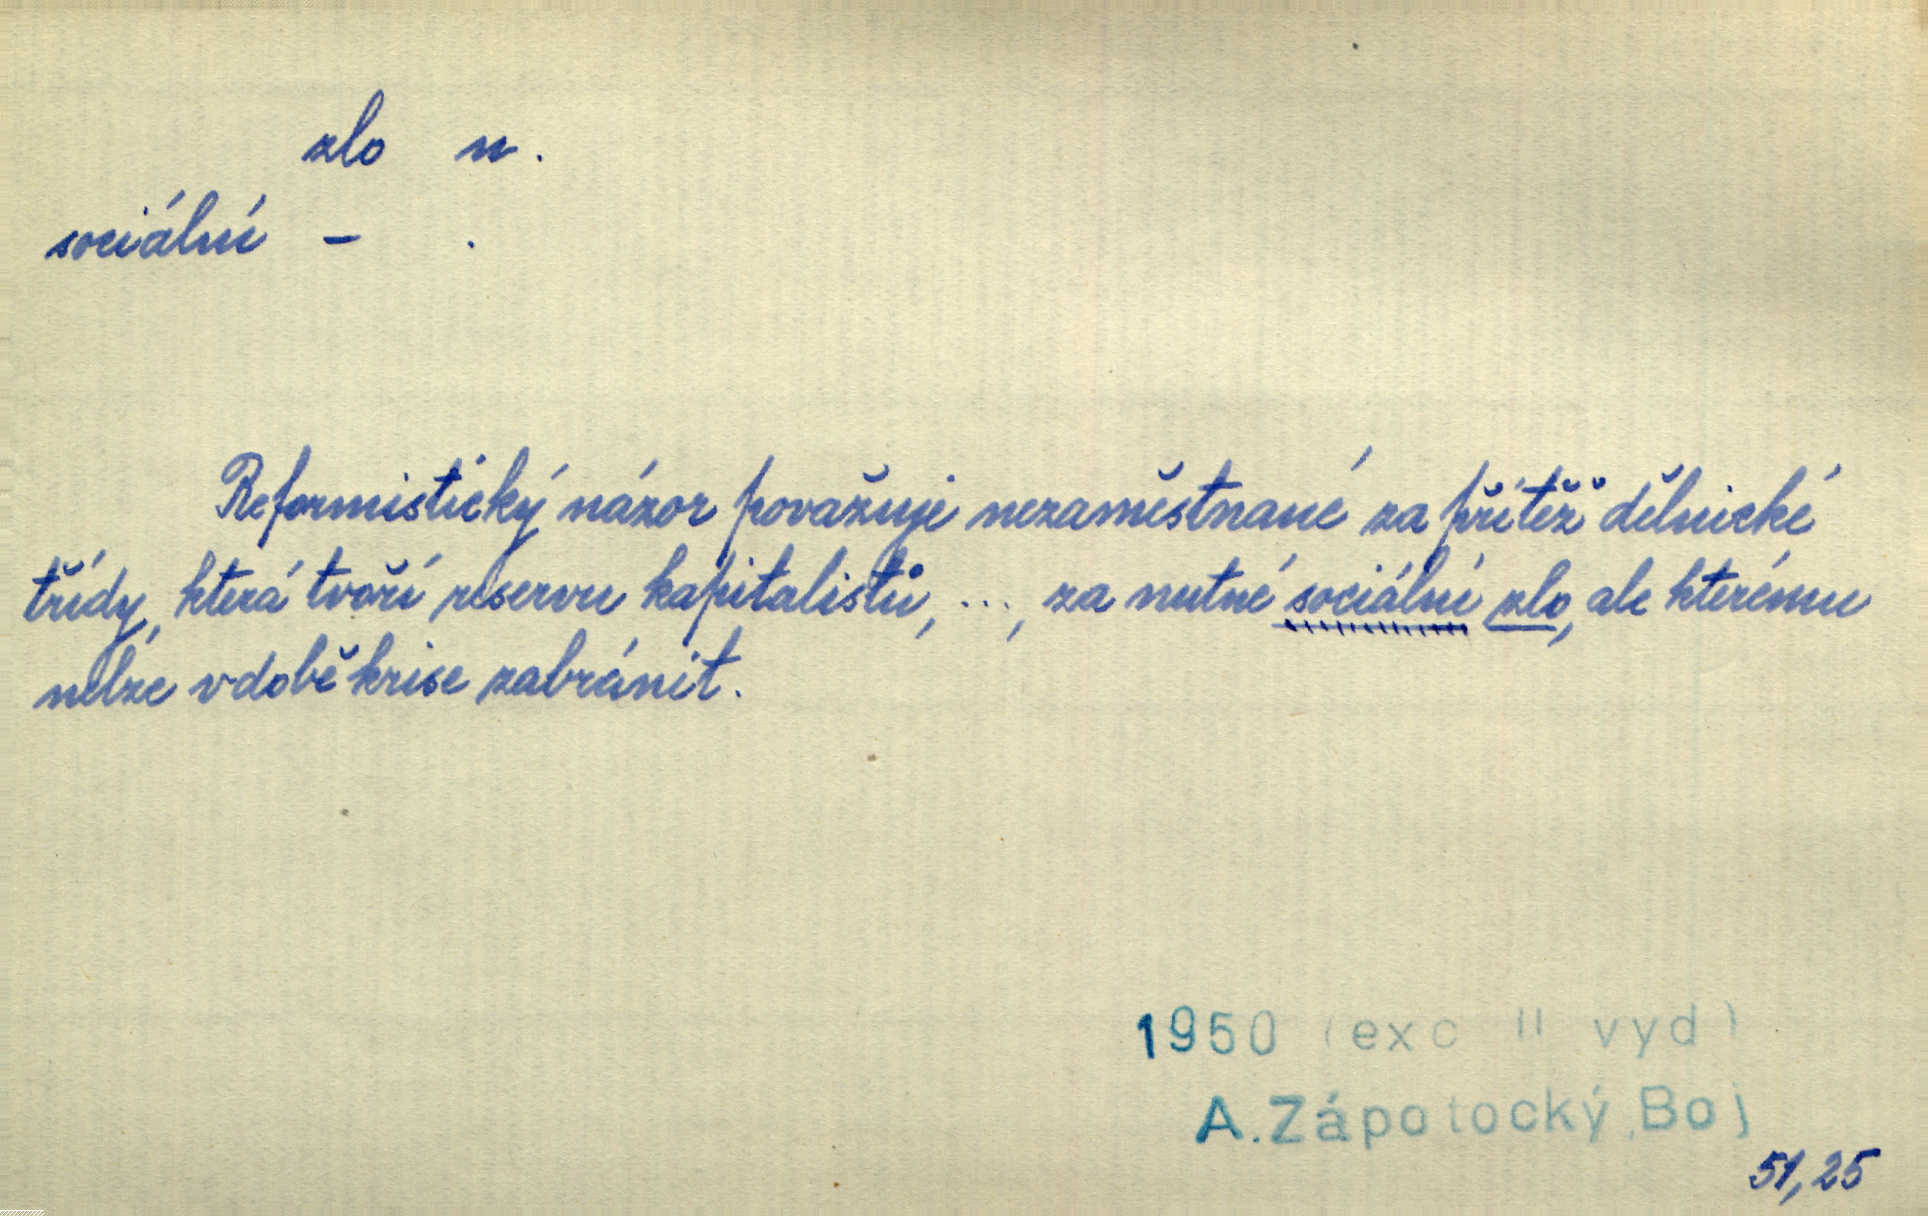 zlo n.
sociální – .
Reformistický názor považuje nezaměstnané za přítěž dělnické
třídy, která tvoří reservu kapitalistů, ..., za nutné sociální zlo, ale kterému
nelze v době krise zabránit.
1950 (exc II vyd)
A.Zápotocký,Boj
51,25